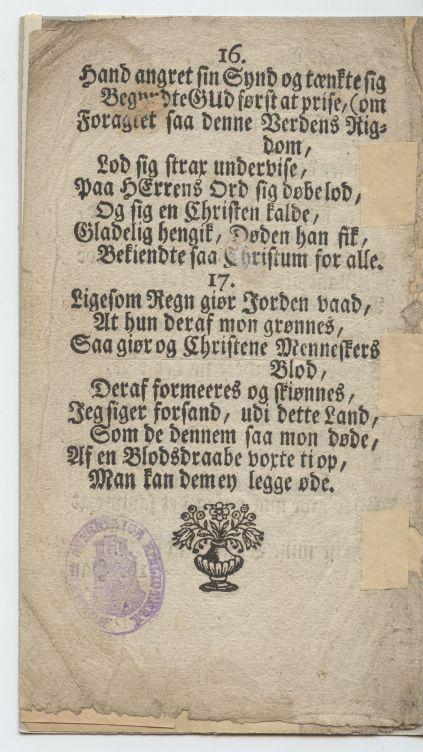 16.
Hand angret sin Synd og tænkte sig
Begyndte GUd først at prise, (om
Foragtet saa denne Verdens Rig=
dom,
Lod sig strax undervise,
Paa HErrens Ord sig døbe lod,
Og sig en Christen kalde,
Gladelig hengik, Døden han fik,
Bekiendte saa Christum for alle.
17.
Ligesom Regn giør Jorden vaad,
At hun deraf mon grønnes,
Saa giør og Christene Menneskers
Blod,
Deraf formeeres og skiønnes,
Jeg siger forsand, udi dette Land,
Som de dennem saa mon døde,
Af en Blodsdraabe voxte ti op,
Man kan dem ey legge øde.